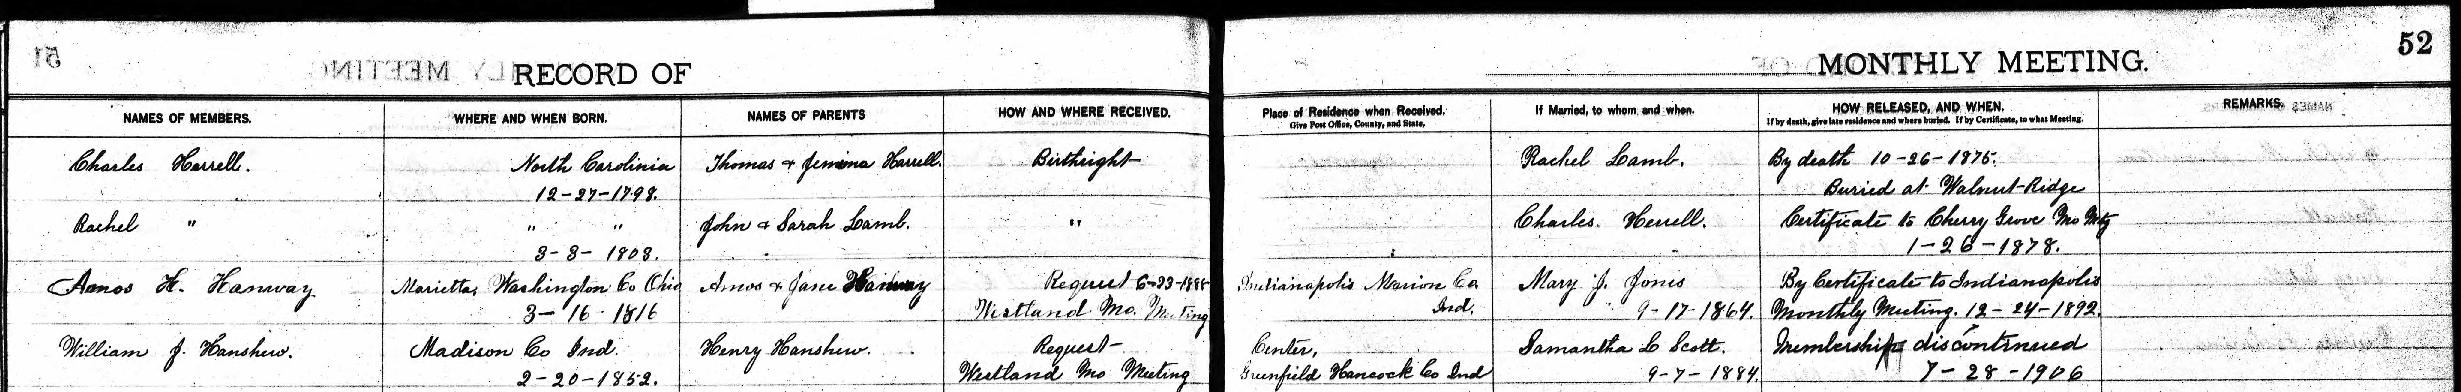 51
RECORD OF
MONTHLY MEETING.
52
NAMES OF MEMBERS.
WHERE AND WHEN BORN.
NAMES OF PARENTS
HOW AND WHERE RECEIVED.
Place of Residence when Received.
Give Post Office, County, and State.
If Married, to whom and when.
HOW RELEASED, AND WHEN.
If by death, give late residence and where buried. If by Certificate, to what Meeting.
REMARKS.
Charles Harrell.
North Carolinia
12-27-1798.
Thomas & Jemima Harrell.
Birthright
Rachel Lamb.
By death 10-26-1875.
Buried at Walnut Ridge
Rachel "
" "
3-8-1803.
John & Sarah Lamb.
"
Charles. Herrell.
Certificate to Cherry Grove Mo Mtg
1-26-1878.
Amos H. Hanway
Marietta, Washington Co Ohio
3-16-1816
Amos & Jane Hanway
Request 6-23-1888
Westland Mo. Meeting
Indianapolis Marion Co
Ind.
Mary J. Jones
9-17-1864.
By Certificate to Indianapolis
Monthly Meeting. 12-24-1892.
William J. Hanshew.
Madison Co Ind.
2-20-1852.
Henry Hanshew.
Request
Westland Mo Meeting
Center,
Greenfield Hancock Co Ind
Samantha L Scott.
9-7-1884.
Membership discontinued
7-28-1906